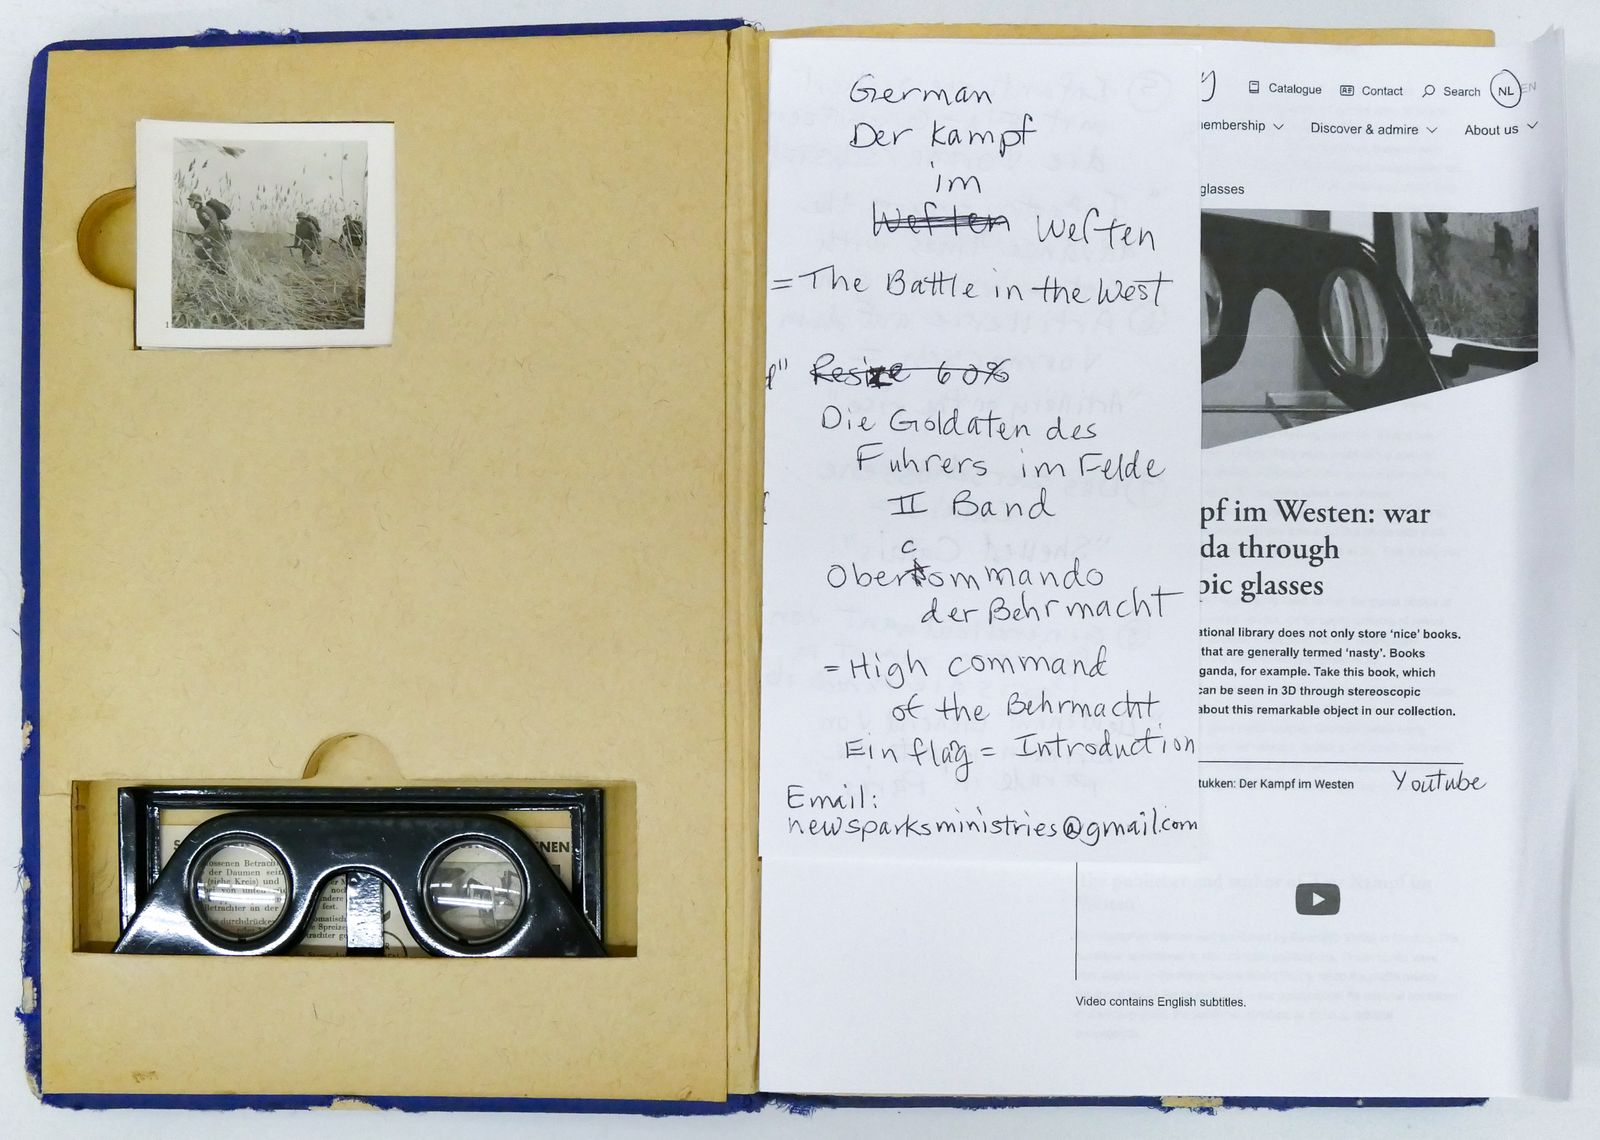 1
German
Der Kampf
im
Weften Weſten
= The Battle in the West
d" Resize 60%
Die Goldaten des
Fuhrers im Felde
II Band
c
Oberkommando
der Behrmacht
= High command
of the Behrmacht
Einflag = Introduction
Email:
newsparksministries@gmail.com
Catalogue Contact Search NL EN
membership Discover & admire About us
glasses
pf im Westen: war
da through
pic glasses
ational library does not only store ‘nice’ books.
that are generally termed ‘nasty’. Books
ganda, for example. Take this book, which
can be seen in 3D through stereoscopic
about this remarkable object in our collection.
tukken: Der Kampf im Westen Youtube
Video contains English subtitles.
ossenen Betracht
der Daumen seit
(ziehe Kreis) und
von unten
Betrachter an der
durchdrücke
noch
andere
fest.
omatisch
e Spreize
trachter
NEN